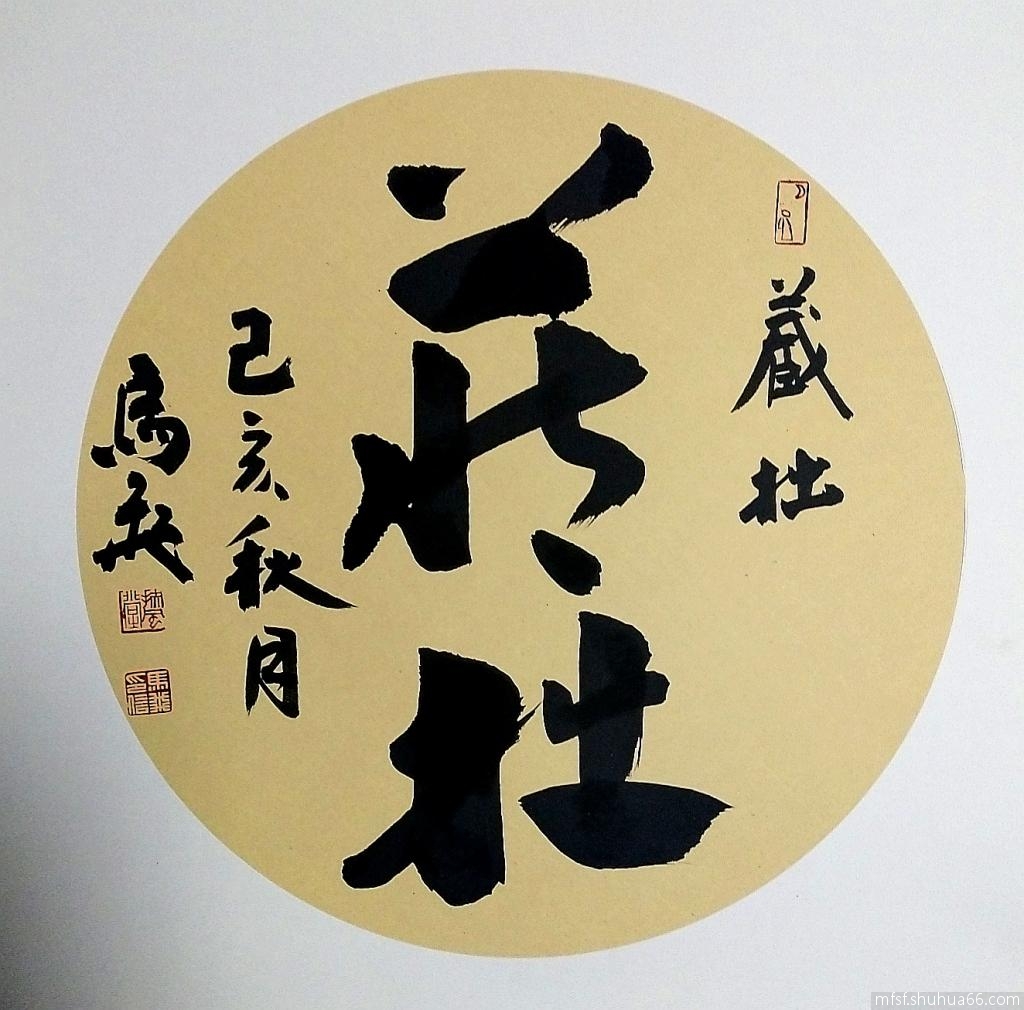 藏拙
藏拙
己亥秋月
馬飛
mfsf.shuhua66.com